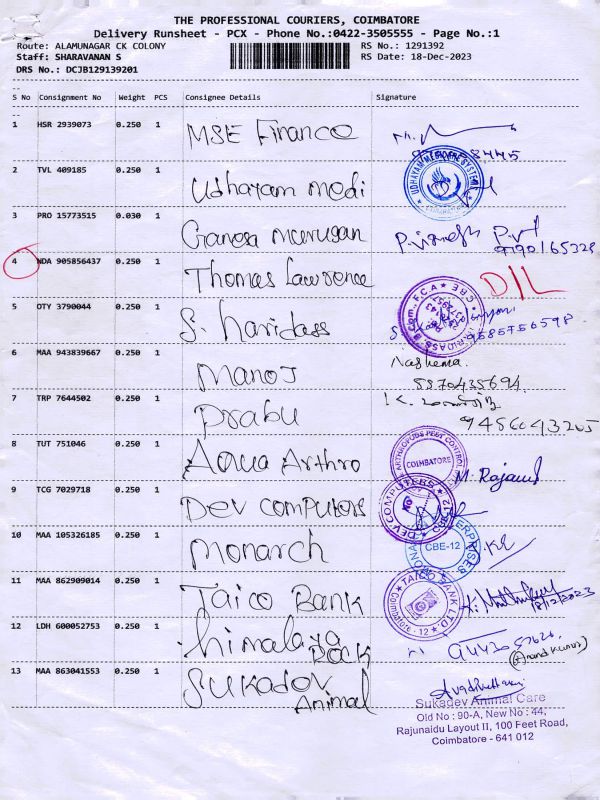 THE PROFESSIONAL COURIERS, COIMBATORE
Delivery Runsheet - PCX - Phone No.:0422-3505555 - Page No.:1
Route: ALAMUNAGAR CK COLONY RS No.: 1291392
Staff: SHARAVANAN S RS Date: 18-Dec-2023
DRS No.: DCJB129139201
S No Consignment No Weight PCS Consignee Details Signature
1 HSR 2939073 0.250 1 MSE Finance
8445
2 TVL 409185 0.250 1 Udhayam Medi
UDHAYAM MEDICARE SYSTEMS
3 PRO 15773515 0.030 1 Ganesa Murugan P.vignesh
9190165328
4 NDA 905856437 0.250 1 Thomas Lawrence D/L
5 OTY 3790044 0.250 1 S. haridass
9585756598
6 MAA 943839667 0.250 1 Manoj Nashema
8870435694
7 TRP 7644502 0.250 1 Prabu
9486043265
8 TUT 751046 0.250 1 Aqua Arthro
ARTHROPODS PEST CONTROL COIMBATORE
9 TCG 7029718 0.250 1 Dev computers
DEV COMPUTERS CBE-12
10 MAA 105326185 0.250 1 Monarch
CBE-12
11 MAA 862909014 0.250 1 Taico Bank
TAICO BANK LTD. Coimbatore - 12
18/12/2023
12 LDH 600052753 0.250 1 himalaya Rock
(Anand kumar)
13 MAA 863041553 0.250 1 Sukadev Animal
Sukadev Animal Care
Old No : 90-A, New No : 44,
Rajunaidu Layout II, 100 Feet Road,
Coimbatore - 641 012